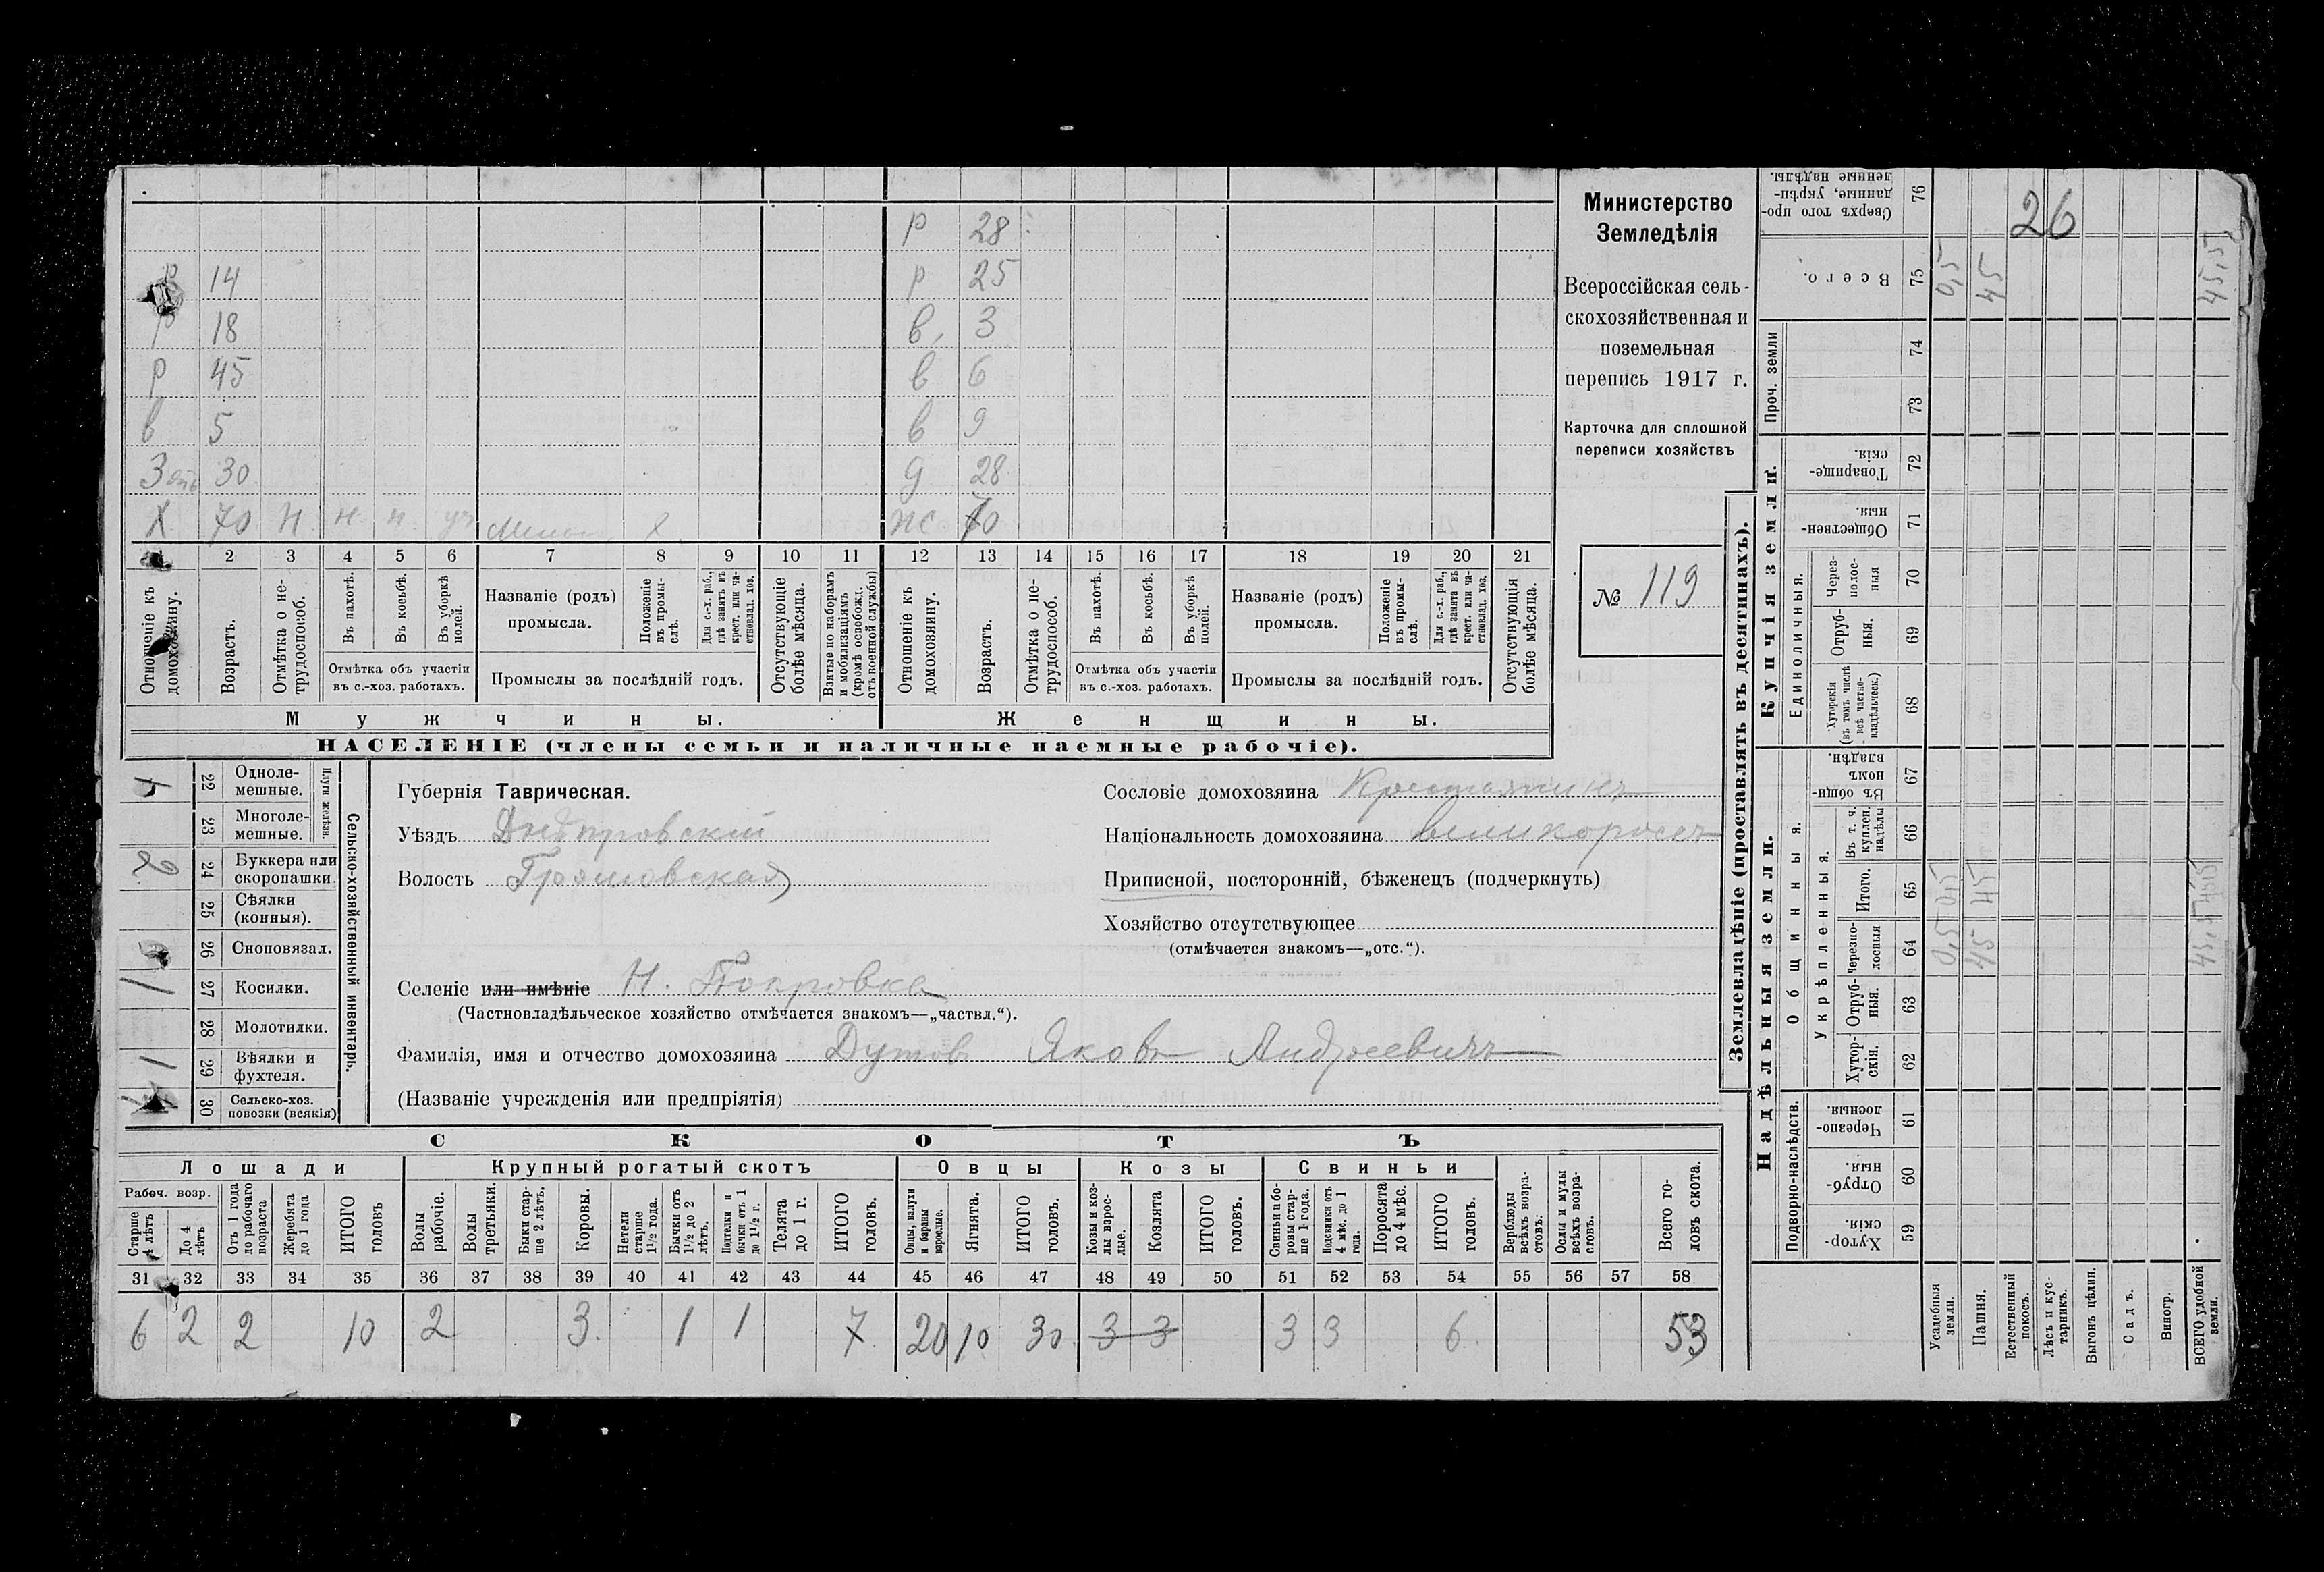 Р 28
Р 14 Р 25
Р 18 в. 3
Р 45 в 6
в 5 в 9
Зять 30 д 28
Х 70 н н н Х жс 70
2 3 4 5 6 7 8 9 10 11 12 13 14 15 16 17 18 19 20 21
Отношеніе къ домохозяину.
Возрастъ.
Отмѣтка о нетрудоспособ.
Въ пахотѣ.
Въ косьбѣ.
Въ уборкѣ полей.
Отмѣтка объ участіи
въ с.-хоз. работахъ.
Названіе (родъ)
промысла.
Положеніе въ промыслѣ.
Для с.-х. раб., гдѣ занятъ въ крест. или частновлад. хоз.
Промыслы за послѣдній годъ.
Отсутствующіе болѣе мѣсяца.
Взятые по наборамъ и мобилизаціямъ (кромѣ освобожд. отъ военной службы)
Отношеніе къ домохозяину.
Возрастъ.
Отмѣтка о нетрудоспособ.
Въ пахотѣ.
Въ косьбѣ.
Въ уборкѣ полей.
Отмѣтка объ участіи
въ с.-хоз. работахъ.
Названіе (родъ)
промысла.
Положеніе въ промыслѣ.
Для с.-х. раб., гдѣ занята въ крест. или частновлад. хоз.
Промыслы за послѣдній годъ.
Отсутствующія болѣе мѣсяца.
Мужчины. Женщины.
НАСЕЛЕНІЕ (члены семьи и наличные наемные рабочіе).
Министерство
Земледѣлія
Всероссійская сель-
скохозяйственная и
поземельная
перепись 1917 г.
Карточка для сплошной
переписи хозяйствъ
№ 119
Сельско-хозяйственный инвентарь.
Плуги желѣзн.
4 22 Одноле-
мешные.
23 Многоле-
мешные.
2 24 Буккера или
скоропашки.
25 Сѣялки
(конныя).
26 Сноповязал.
1 27 Косилки.
28 Молотилки.
1 29 Вѣялки и
фухтеля.
30 Сельско-хоз.
повозки (всякія)
Губернія Таврическая.
Уѣздъ Днѣпровскій
Волость Громовская
Селеніе или имѣніе Н. Покровка
(Частновладѣльческое хозяйство отмѣчается знакомъ—„частвл.“).
Фамилія, имя и отчество домохозяина Дутовъ Яковъ Андреевичъ
(Названіе учрежденія или предпріятія)
Сословіе домохозяина Крестьянинъ
Національность домохозяина великороссъ
Приписной, посторонній, бѣженецъ (подчеркнуть)
Хозяйство отсутствующее
(отмѣчается знакомъ—„отс.“).
СКОТЪ
Лошади Крупный рогатый скотъ Овцы Козы Свиньи
Рабоч. возр.
Старше 4 лѣтъ
До 4 лѣтъ
Отъ 1 года до рабочаго возраста
Жеребята до 1 года
ИТОГО головъ
Волы рабочіе.
Волы третьяки.
Быки старше 2 лѣтъ.
Коровы.
Нетели старше 1½ года.
Бычки отъ 1½ до 2 лѣтъ.
Подтелки и бычки отъ 1 до 1½ г.
Телята до 1 г.
ИТОГО головъ.
Овцы, валухи и бараны взрослые.
Ягнята.
ИТОГО головъ.
Козы и козлы взрослые.
Козлята
ИТОГО головъ.
Свиньи и боровы старше 1 года.
Подсвинки отъ 4 мѣс. до 1 года.
Поросята до 4 мѣс.
ИТОГО головъ.
Верблюды всѣхъ возрастовъ.
Ослы и мулы всѣхъ возрастовъ.
Всего головъ скота.
31 32 33 34 35 36 37 38 39 40 41 42 43 44 45 46 47 48 49 50 51 52 53 54 55 56 57 58
6 2 2 10 2 3. 1 1 7. 20 10 30. 3 3 3 3 6. 53
Землевладѣніе (проставлять въ десятинахъ).
Надѣльныя земли. Купчія земли. Проч. земли
Подворно-наслѣдств.
Общинныя.
Укрѣпленныя.
Единоличныя.
59 Хутор-
скія.
60 Отруб-
ныя.
61 Черезпо-
лосныя.
62 Хутор-
скія.
63 Отруб-
ныя.
64 Черезпо-
лосныя
65 Итого.
66 Въ т. ч. куплен. надѣлы
67 Въ общин-
номъ
владѣн.
68 Хуторскія (въ томъ числѣ всѣ частновладѣльческ.)
69 Отруб-
ныя.
70 Через-
полос-
ныя
71 Обществен-
ныя.
72 Товарище-
скія.
73
74
75 Всего.
76 Сверхъ того про-
данные, укрѣп-
ленные надѣлы.
26
Усадебныя земли. 0,5 0,5 0,5
Пашня. 45 45 45
Естественный покосъ.
Лѣсъ и кустарникъ.
Выгонъ цѣлин.
Садъ.
Виногр.
ВСЕГО удобной земли. 45,5 45,5 45,5